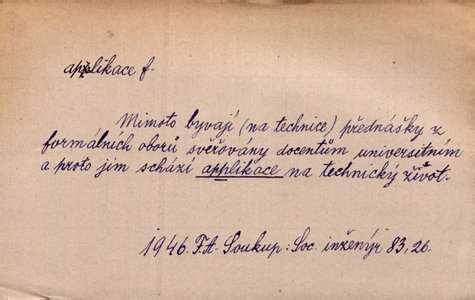 applikace f.
Mimoto bývají (na technice) přednášky z
formálních oborů svěřovány docentům universitním
a proto jim schází applikace na technický život.
1946. F.A. Soukup: Soc. inženýr 83, 26.